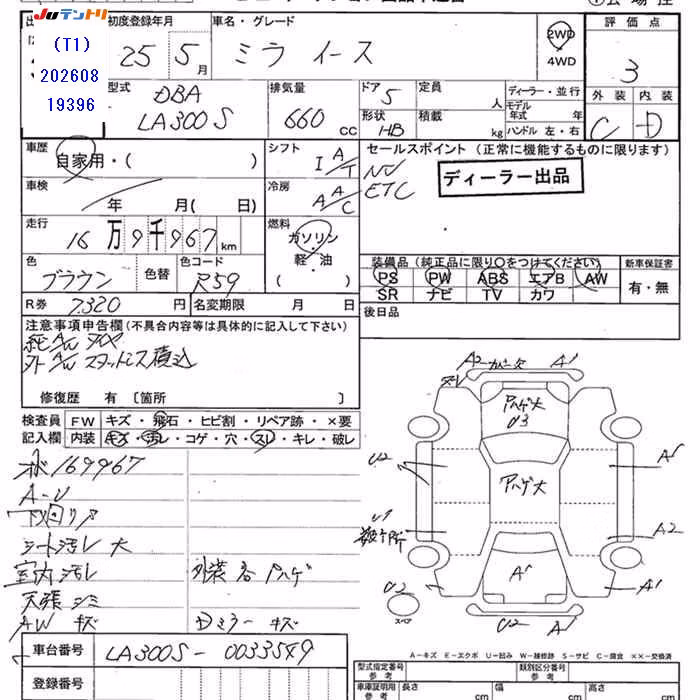 Juテントリ
(T1)
202608
19396
初度登録年月
25 5月
車名・グレード
ミラ イース
2WD
4WD
評価点
3
外装 内装
C D
型式
DBA
LA300S
排気量
660 CC
ドア 5
形状 HB
定員 人
積載 kg
ディーラー・並行
モデル
年式 年
ハンドル 左・右
車歴
自家用・( )
シフト
I A/T
セールスポイント(正常に機能するものに限ります)
ETC
ディーラー出品
車検
年 月( 日)
冷房
A A/C
走行
16万9千967km
燃料
ガソリン
軽・油
( )
色
ブラウン
色替
色コード
R59
装備品(純正品に限り○をつけてください)
PS PW ABS エアB AW
SR ナビ TV カワ
新車保証書
有・無
R券 7320円
名変期限 月 日
後日品
注意事項申告欄(不具合内容等は具体的に記入して下さい)
外A/W スタッドレス積込
修復歴 有〔箇所 〕
検査員
記入欄
FW キズ・飛石・ヒビ割・リペア跡・×要
内装 キズ・汚レ・コゲ・穴・スレ・キレ・破レ
169967
A-U
シート汚レ 大
室内汚レ
外装各ハゲ
天張シミ
AW キズ
Dミラーキズ
A2 カバー欠 A1
ハゲ大
U3
U2
A1
ハゲ大
U1
数ヶ所
A2
A1
U2
A1
スペア
U2 A1
A−キズ E−エクボ U−凹み W−補修跡 S−サビ C−腐食 ××−交換済
車台番号
LA300S-0033549
登録番号
型式指定番号
参考
類別区分番号
参考
車庫証明用
参考
長さ cm
幅 cm
高さ cm